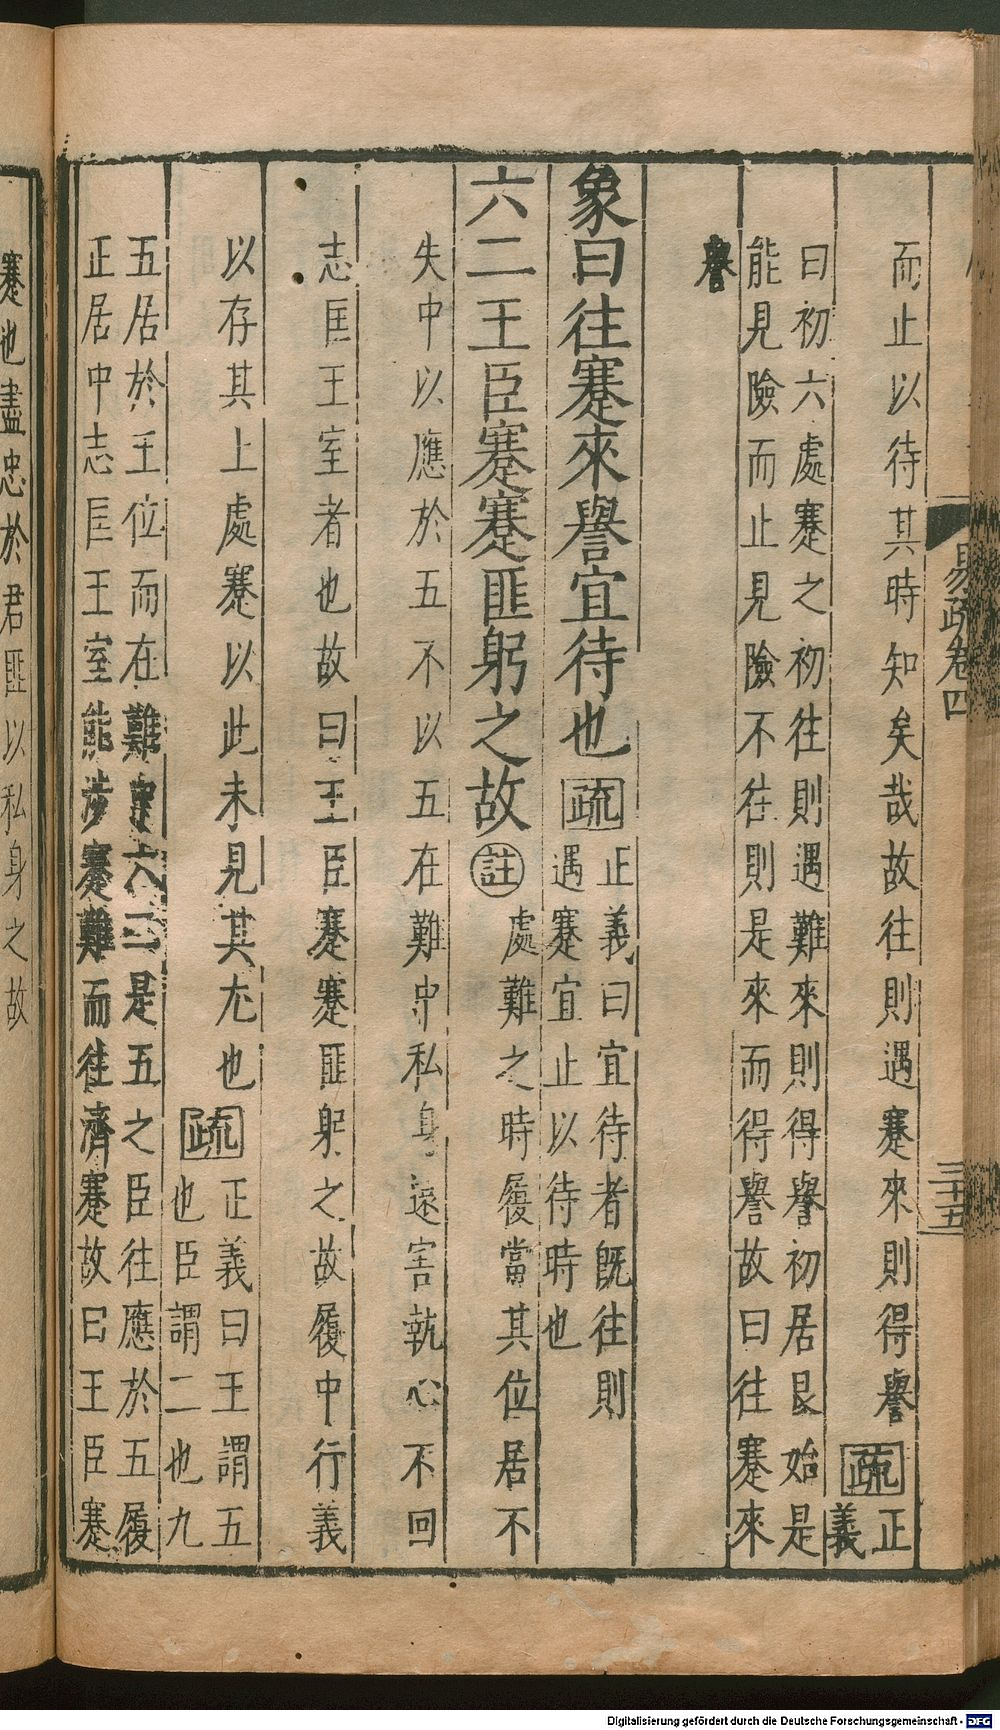 而止以待其時知矣哉故往則遇蹇來則得譽疏正
義
曰初六處蹇之初往則遇難來則得譽初居艮始是
能見險而止見險不往則是來而得譽故曰往蹇來
譽
象曰往蹇來譽宜待也疏正義曰宜待者旣往則
遇蹇宜止以待時也
六二王臣蹇蹇匪躬之故註處難之時履當其位居不
失中以應於五不以五在難中私身遠害執心不回
志匡王室者也故曰王臣蹇蹇匪躬之故履中行義
以存其上處蹇以此未見其尤也疏正義曰王謂五
也臣謂二也九
五居於王位而在難中六二是五之臣往應於五履
正居中志匡王室能涉蹇難而往濟蹇故曰王臣蹇
蹇也盡忠於君匪以私身之故
易疏卷四
三十五
Digitalisierung gefördert durch die Deutsche Forschungsgemeinschaft - DFG